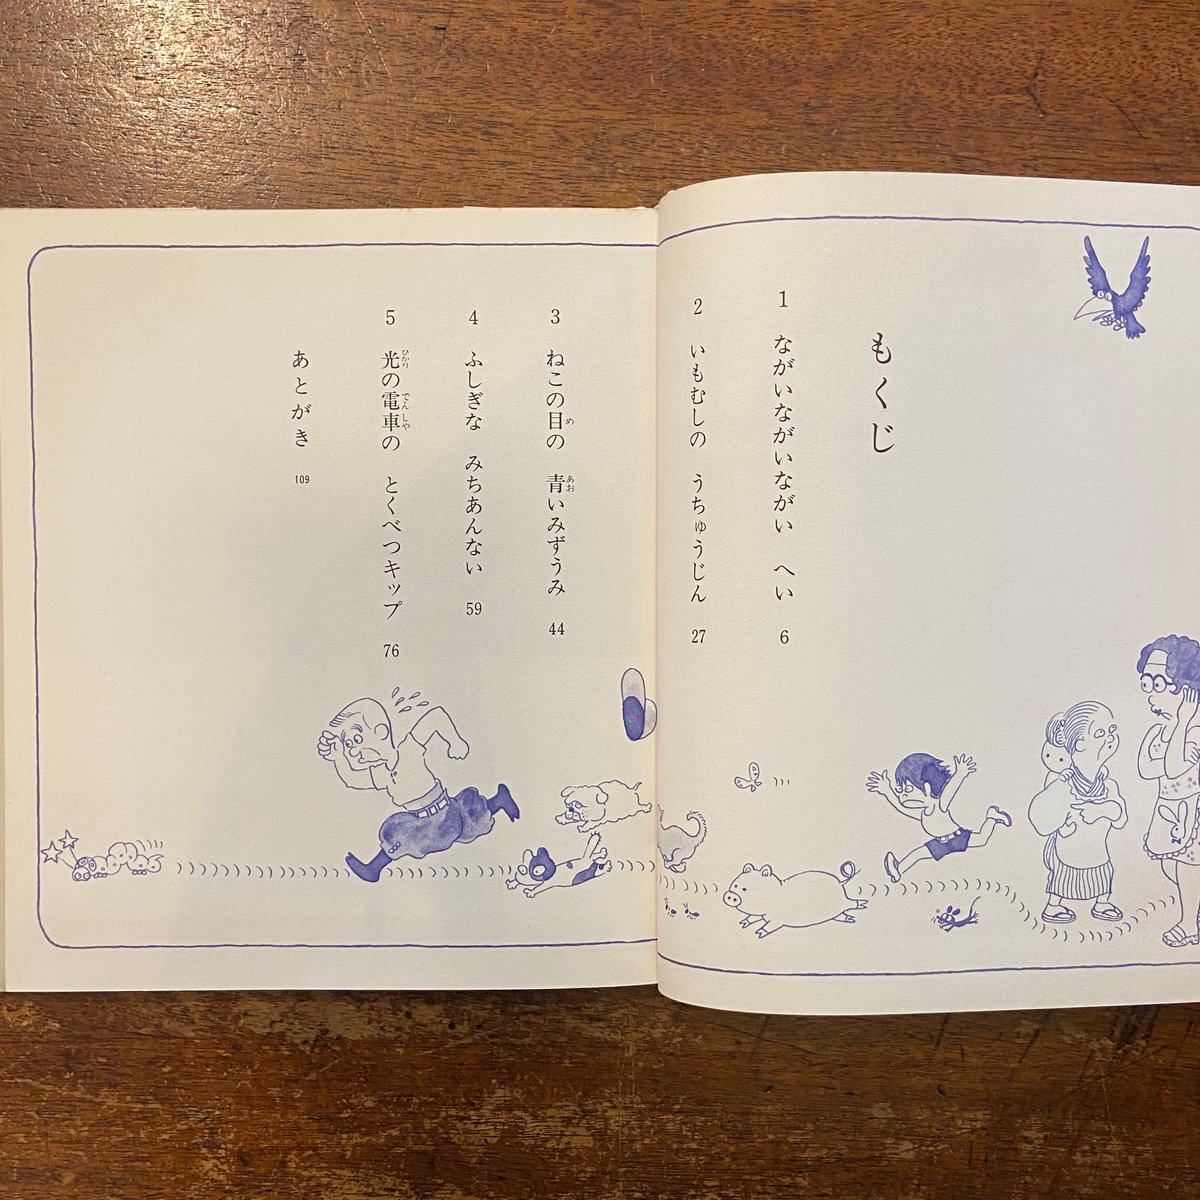 もくじ
1 ながいながいながい へい 6
2 いもむしの うちゅうじん 27
3 ねこの目の 青いみずうみ 44
4 ふしぎな みちあんない 59
5 光の電車の とくべつキップ 76
あとがき 109